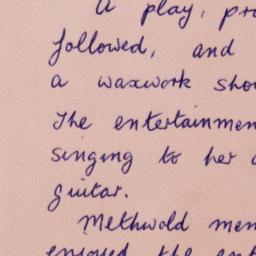 A play, pro
followed, and
a waxwork sho
The entertainmen
singing to her
guitar.
Methwold men
enjoyed the ent